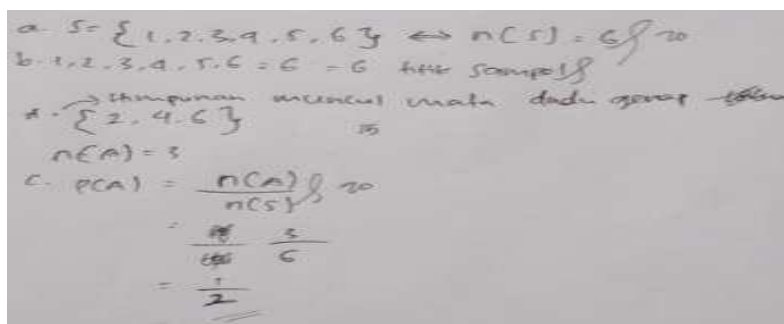 a. S = {1.2.3.4.5.6} ↔ n(S) = 6 20
b. 1,2,3,4,5,6 = 6 = 6 titik sampel
* → Himpunan muncul mata dadu genap
{2,4,6} 15
n(A) = 3
c. P(A) = n(A) / n(S) 20
= 3 / 6
= 1 / 2